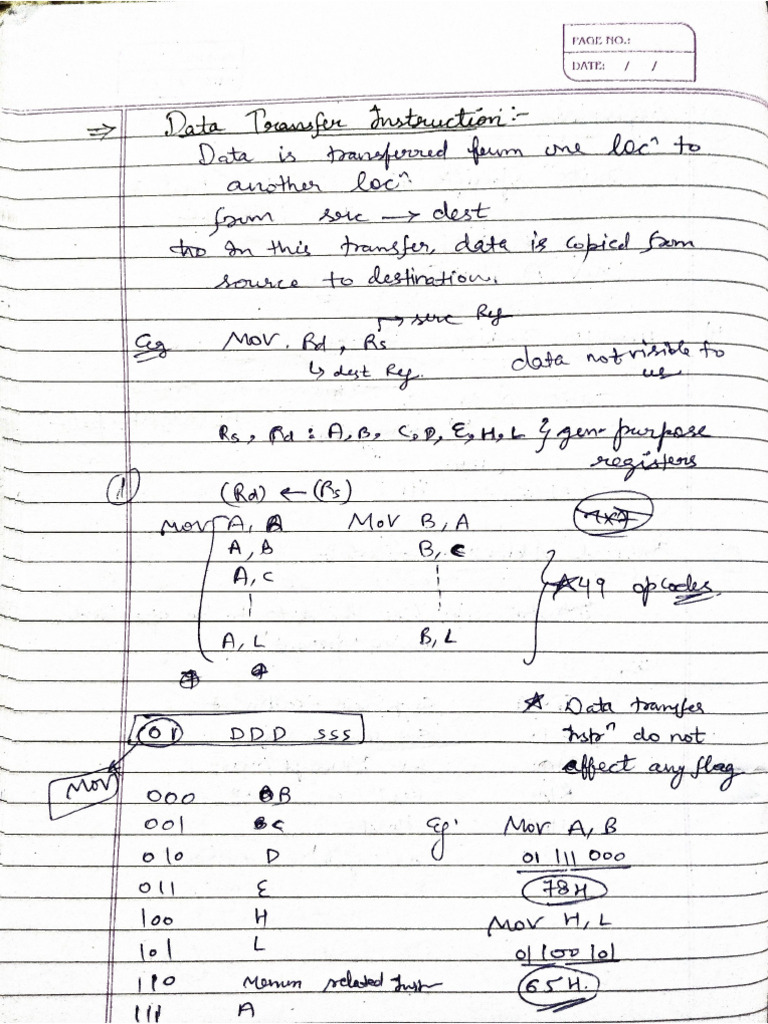 PAGE NO.:
DATE: / /
⇒ Data Transfer Instruction:-
Data is transferred from one locn to
another locn.
from src → dest
In this transfer, data is copied from
source to destination.
→ src Reg
Eg MOV. Rd, Rs
↳ dest Reg.
data not visible to us
Rs, Rd : A, B, C, D, E, H, L } gen purpose
registers
① (Rd) ← (Rs)
MOV A, A MOV B, A
A, B B, C
A, C ¦
¦ ¦
A, L B, L
} ★49 opcodes
★ Data transfer
Instrn do not
affect any flag
01 DDD SSS
MOV
000 B
001 C
010 D
011 E
100 H
101 L
110 related Instr
111 A
Eg: MOV A, B
01 111 000
78H
MOV H, L
01 100 101
65H.